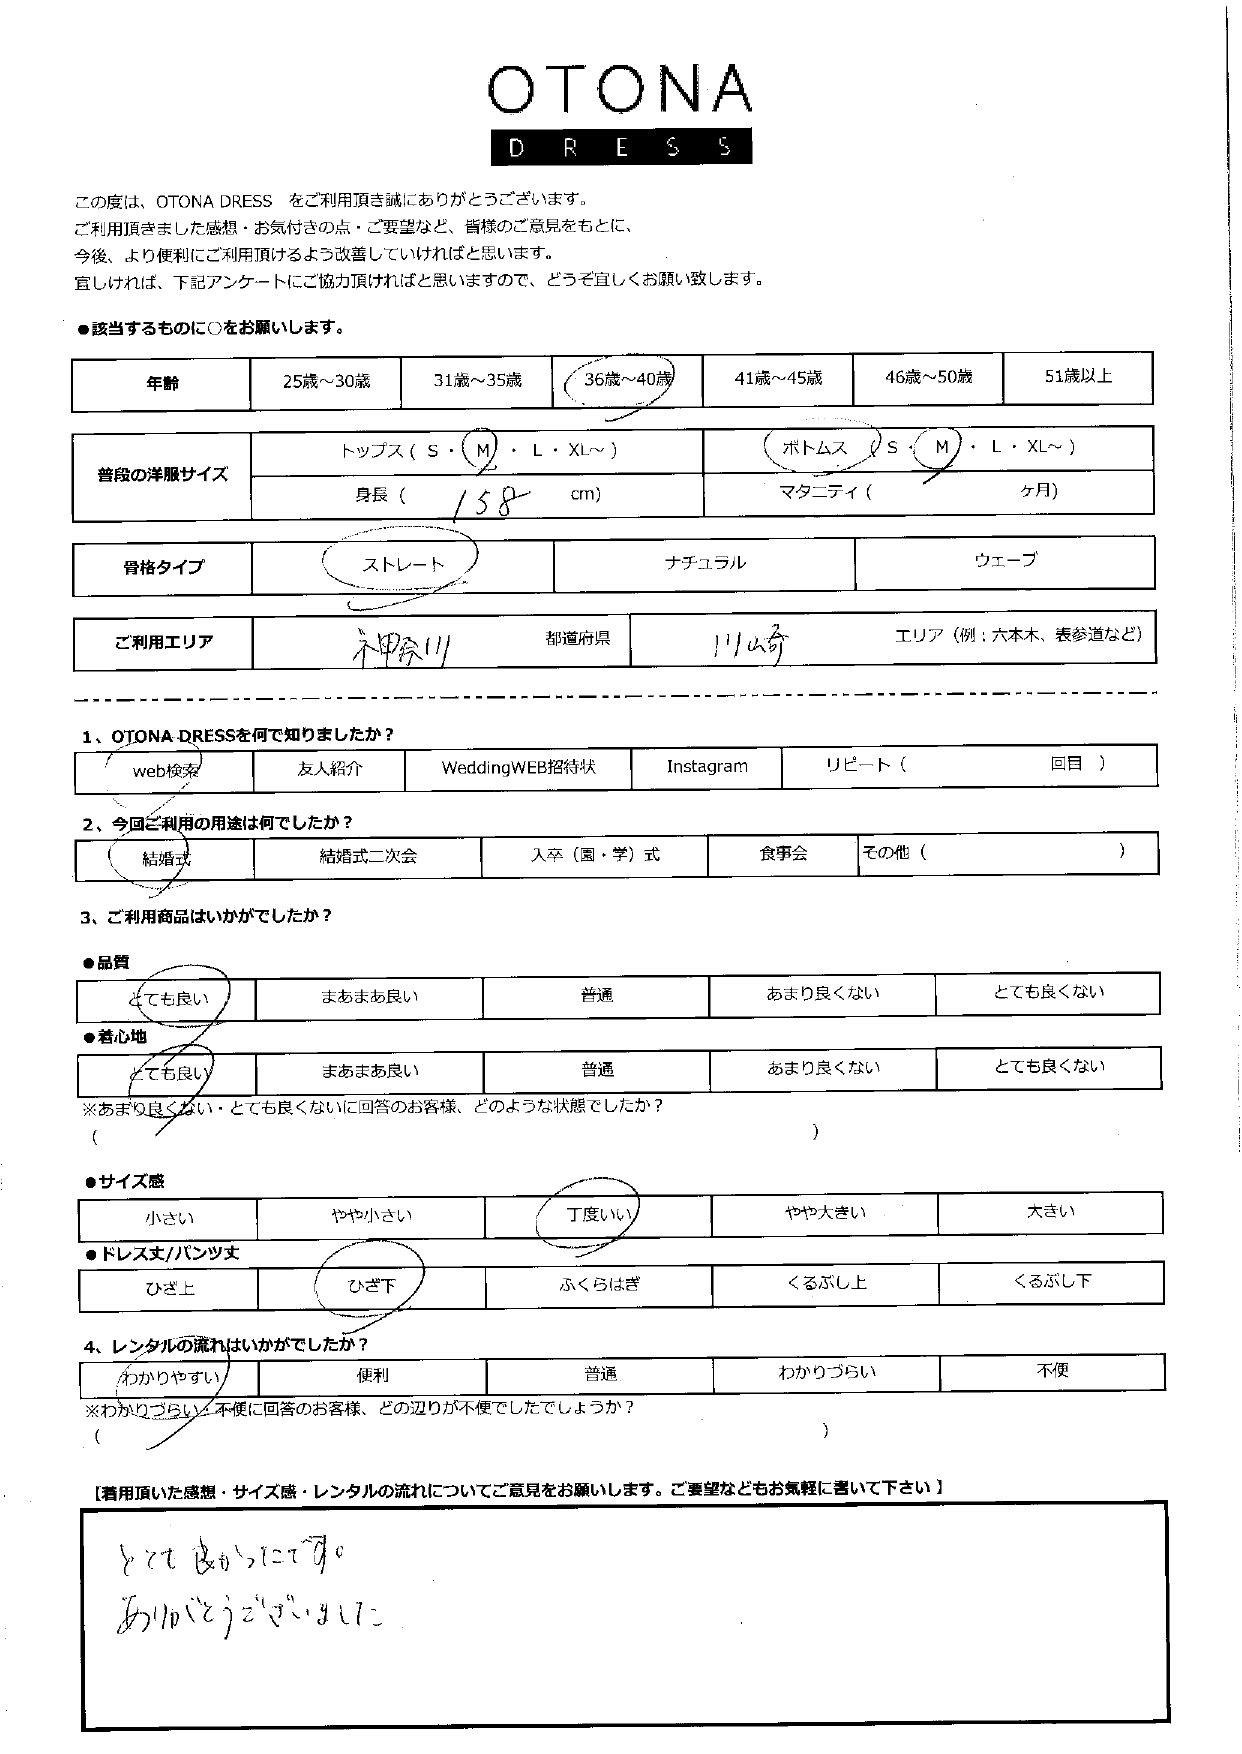 OTONA
DRESS
この度は、OTONA DRESS をご利用頂き誠にありがとうございます。
ご利用頂きました感想・お気付きの点・ご要望など、皆様のご意見をもとに、
今後、より便利にご利用頂けるよう改善していければと思います。
宜しければ、下記アンケートにご協力頂ければと思いますので、どうぞ宜しくお願い致します。
●該当するものに○をお願いします。
年齢 25歳～30歳 31歳～35歳 36歳～40歳 41歳～45歳 46歳～50歳 51歳以上
普段の洋服サイズ トップス ( S ・ M ・ L ・ XL～ ) ボトムス ( S ・ M ・ L ・ XL～ )
身長 ( 158 cm) マタニティ ( ケ月)
骨格タイプ ストレート ナチュラル ウェーブ
ご利用エリア 神奈川 都道府県 川崎 エリア（例；六本木、表参道など）
1、OTONA DRESSを何で知りましたか？
web検索 友人紹介 WeddingWEB招待状 Instagram リピート ( 回目 )
2、今回ご利用の用途は何でしたか？
結婚式 結婚式二次会 入卒（園・学）式 食事会 その他 ( )
3、ご利用商品はいかがでしたか？
●品質
とても良い まあまあ良い 普通 あまり良くない とても良くない
●着心地
とても良い まあまあ良い 普通 あまり良くない とても良くない
※あまり良くない・とても良くないに回答のお客様、どのような状態でしたか？
( )
●サイズ感
小さい やや小さい 丁度いい やや大きい 大きい
●ドレス丈/パンツ丈
ひざ上 ひざ下 ふくらはぎ くるぶし上 くるぶし下
4、レンタルの流れはいかがでしたか？
わかりやすい 便利 普通 わかりづらい 不便
※わかりづらい・不便に回答のお客様、どの辺りが不便でしたでしょうか？
( )
【着用頂いた感想・サイズ感・レンタルの流れについてご意見をお願いします。ご要望などもお気軽に書いて下さい】
とても良かったです。
ありがとうございました